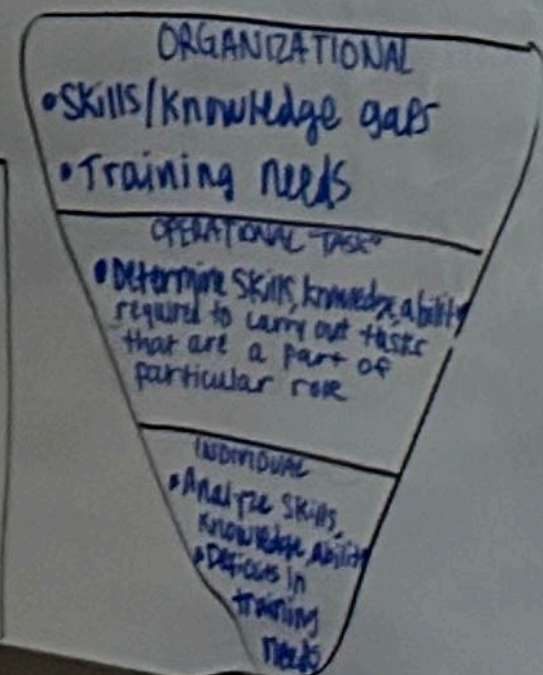 ORGANIZATIONAL
•Skills/Knowledge gaps
•Training needs
OPERATIONAL "TASK"
•Determine skills, knowledge, ability
required to carry out tasks
that are a part of
particular role
INDIVIDUAL
•Analyze skills,
knowledge, ability
•Deficits in
training
needs